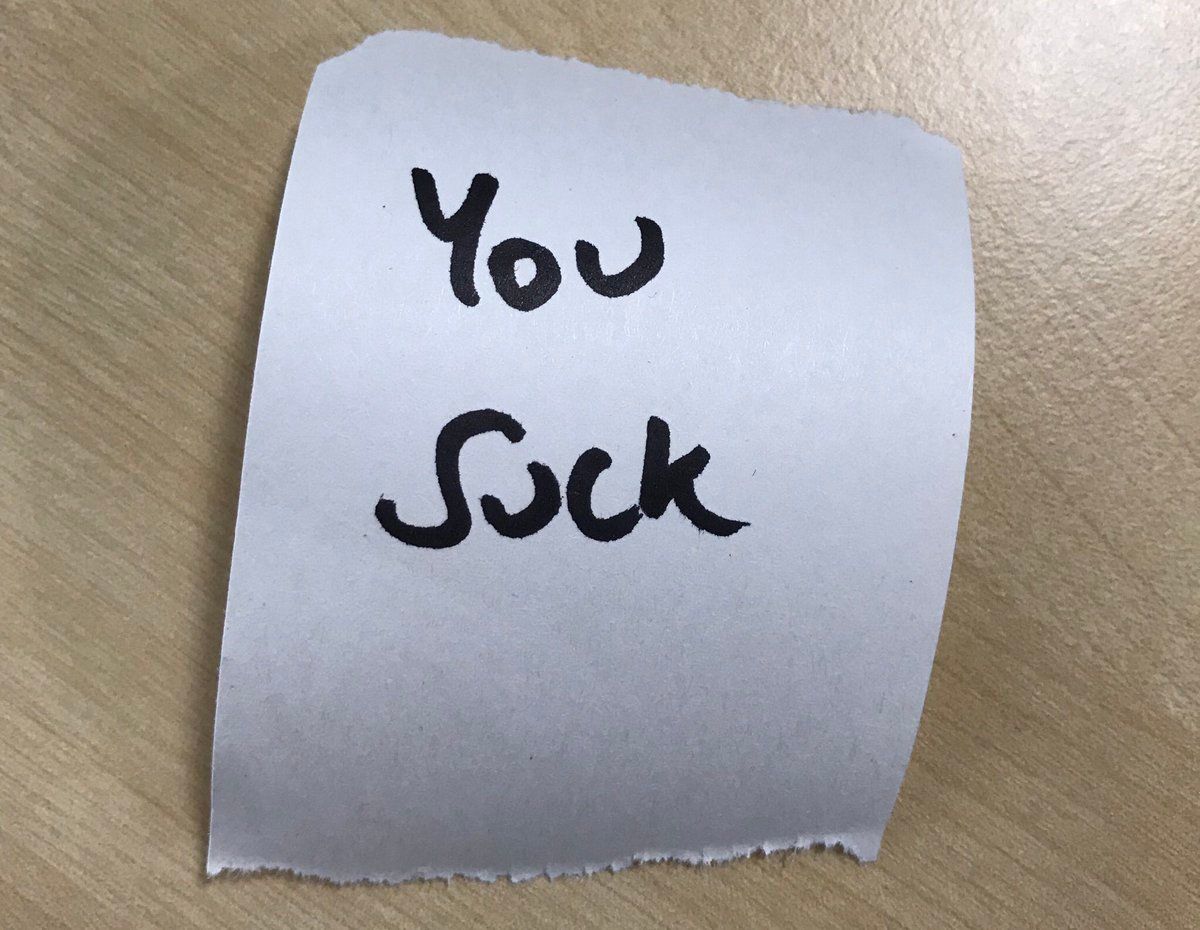 You
Suck